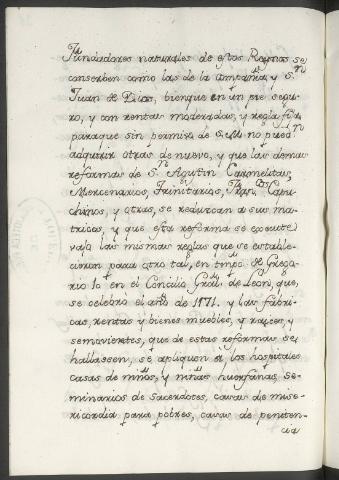 Fundadores naturales de estos Reynos se
conserben como las de la Compañia, y Sn
Juan de Dios, bien que en un pie segu-
ro, y con rentas moderadas, y regla fixa
para que sin permiso de S.M. no puedn
adquirir otras de nuevo, y que las demas
reformas de Sn Agustin Carmelitas,
Mercenarios, Trinitarios, Capu-
chinos, y otras, se reduzcan a sus ma-
trices, y que esta reforma se execute
vajo las mismas reglas que se estable-
cieron para otro tal, en tmpo de Grego-
rio 10 en el Concilio Gral. de Leon, que
se celebro el año de 1274. y las fabri-
cas, rentas y bienes muebles, y rayces, y
semovientes, que de estas reformas se
hallassen, se apliquen a los hospitales
casas de niños, y niñas huerfanas, se-
minarios de Sacerdotes, casas de mise-
ricordia para pobres, casas de peniten-
cia